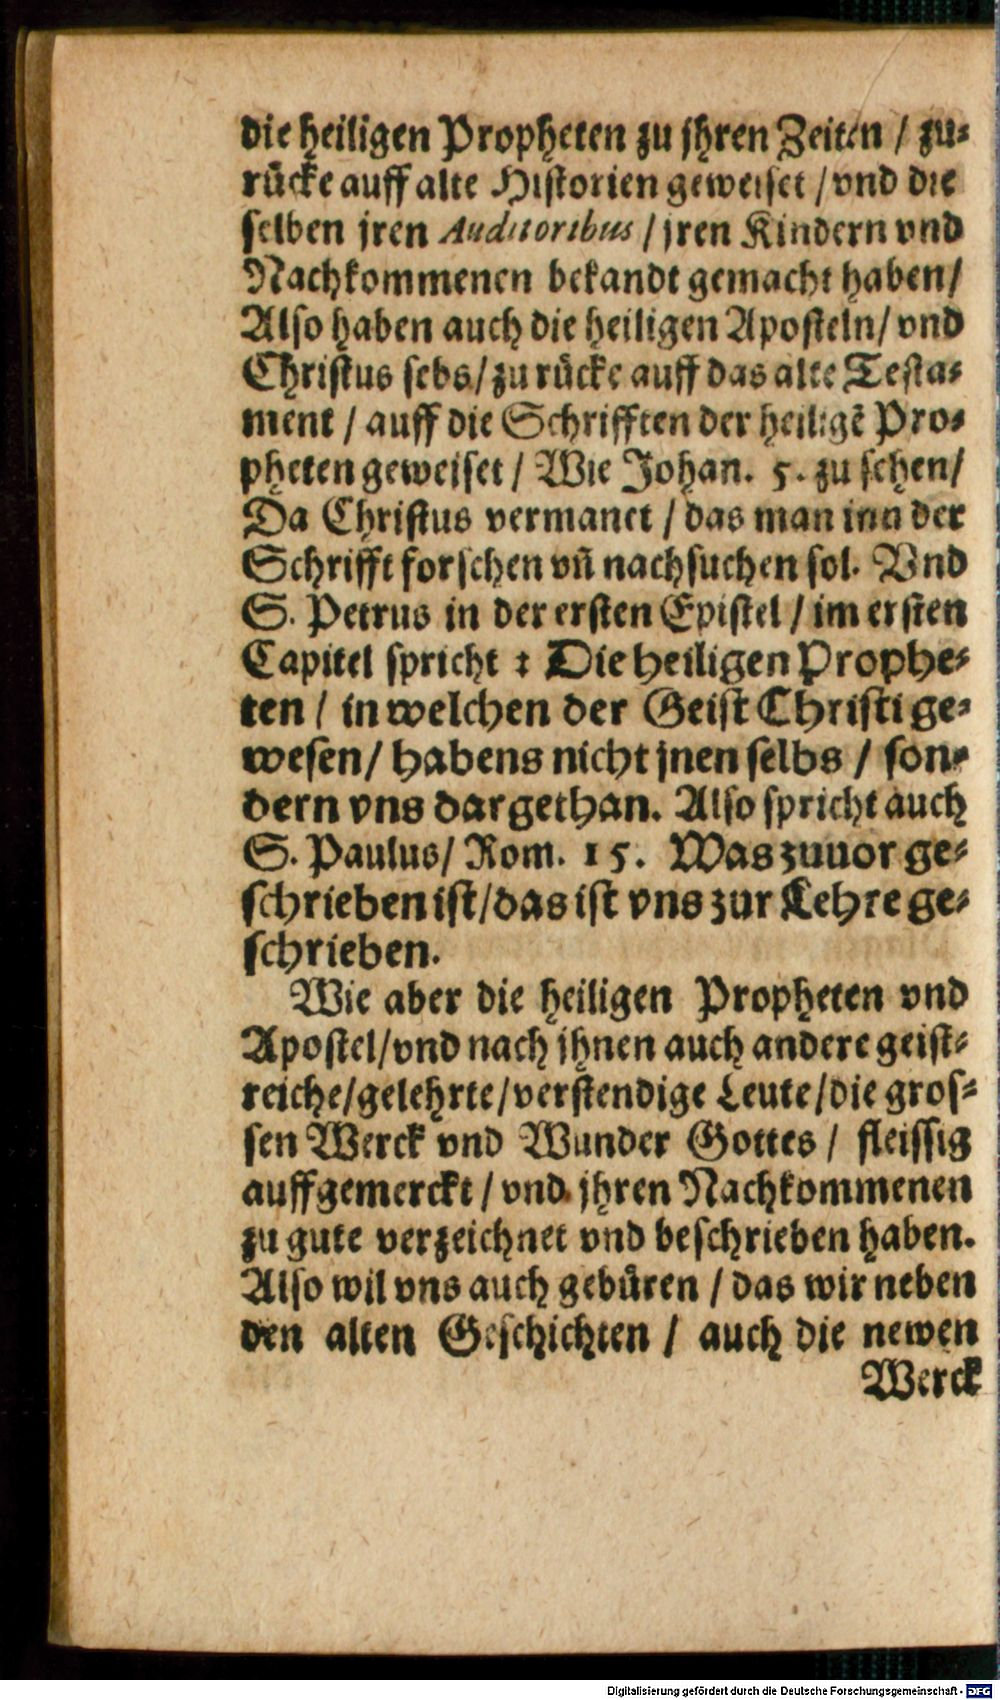 die heiligen Propheten zu jhren Zeiten / zu-
rücke auff alte Historien geweiset / vnd die
selben jren Auditoribus / jren Kindern vnd
Nachkommenen bekandt gemacht haben/
Also haben auch die heiligen Aposteln/ vnd
Christus sebs/ zu rücke auff das alte Testa-
ment / auff die Schrifften der heiligẽ Pro-
pheten geweiset / Wie Johan. 5. zu sehen/
Da Christus vermanet / das man inn der
Schrifft forschen vñ nachsuchen sol. Vnd
S. Petrus in der ersten Epistel / im ersten
Capitel spricht : Die heiligen Prophe-
ten / in welchen der Geist Christi ge-
wesen/ habens nicht jnen selbs / son-
dern vns dargethan. Also spricht auch
S. Paulus/ Rom. 15. Was zuuor ge-
schrieben ist/das ist vns zur Lehre ge-
schrieben.
Wie aber die heiligen Propheten vnd
Apostel/vnd nach jhnen auch andere geist-
reiche/gelehrte/verstendige Leute/die gros-
sen Werck vnd Wunder Gottes / fleissig
auffgemerckt / vnd jhren Nachkommenen
zu gute verzeichnet vnd beschrieben haben.
Also wil vns auch gebüren / das wir neben
den alten Geschichten / auch die newen
Werck
Digitalisierung gefördert durch die Deutsche Forschungsgemeinschaft - DFG